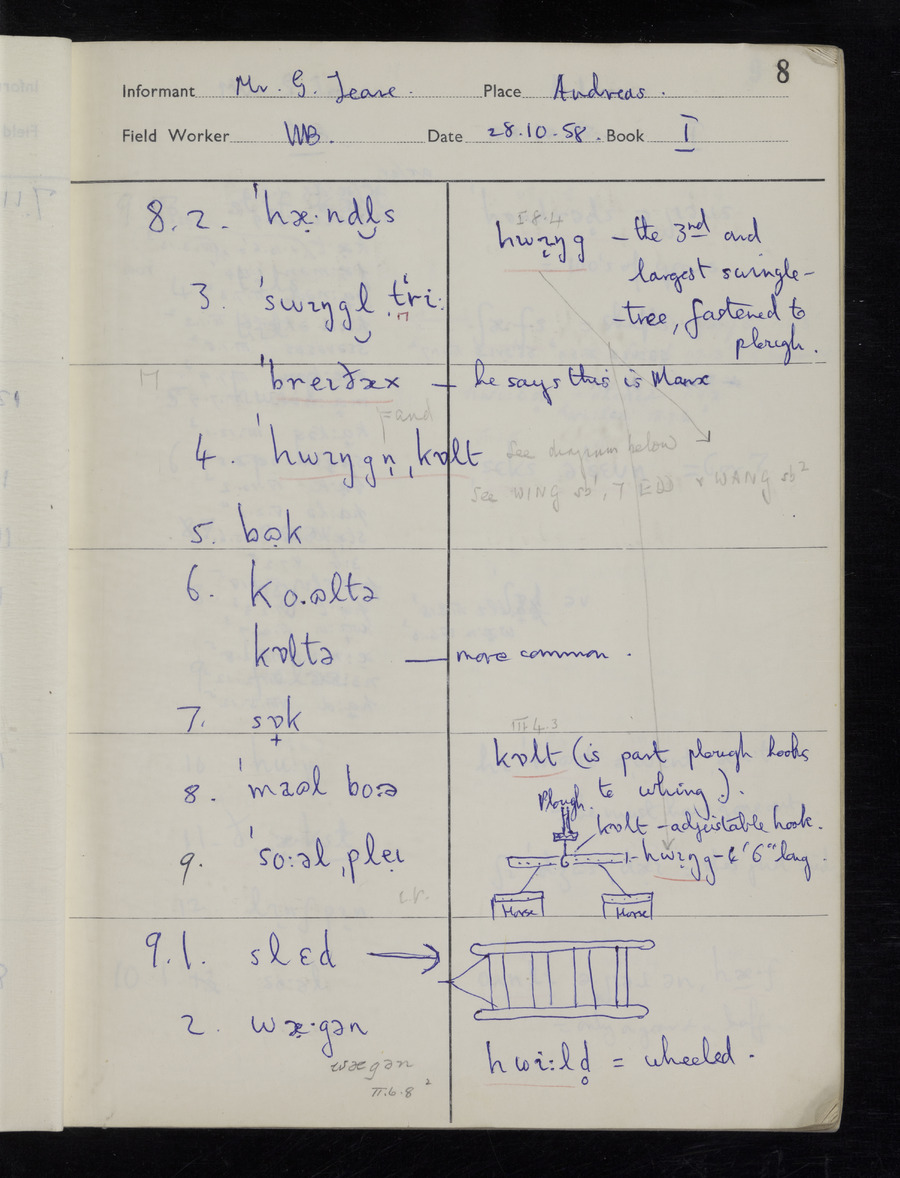 8
Informant Mr. G. Teare. Place Andreas.
Field Worker MB. Date 28.10.58. Book I
8.2. ˈhæ̣·ndl̩s
3. ˈswɪŋgl̩ ˌtri:
ˈbreɪðæx — he says this is Manx
=and
4. ˈhwɪŋgn̩ ˌkɒlt
5. bɷk
6. ko.ɷltə
kɒltə — more common.
7. sɒk
8. ˈmaɷl bo:ə
9. ˈso:əl ˌpleɪ
i.r.
9.1. slɛd →
2. wæ̣·gən
wægən
II.6.8²
I.8.4
hwɪŋg – the 3rd and
largest swingle-
-tree, fastened to
plough.
See diagram below
See WING sb¹, 7 EDD & WANG sb²
III 4.3
kɒlt (is part plough hooks
to whing).
Plough.
kɒlt – adjustable hook.
hwɪŋg – 6'6" long.
Horse Horse
hwi:ld̥ = wheeled.